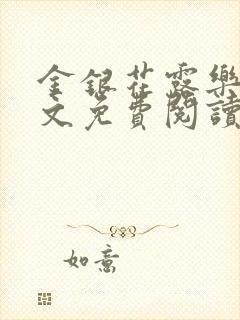 金銀花露樂
文免費閱讀
如意